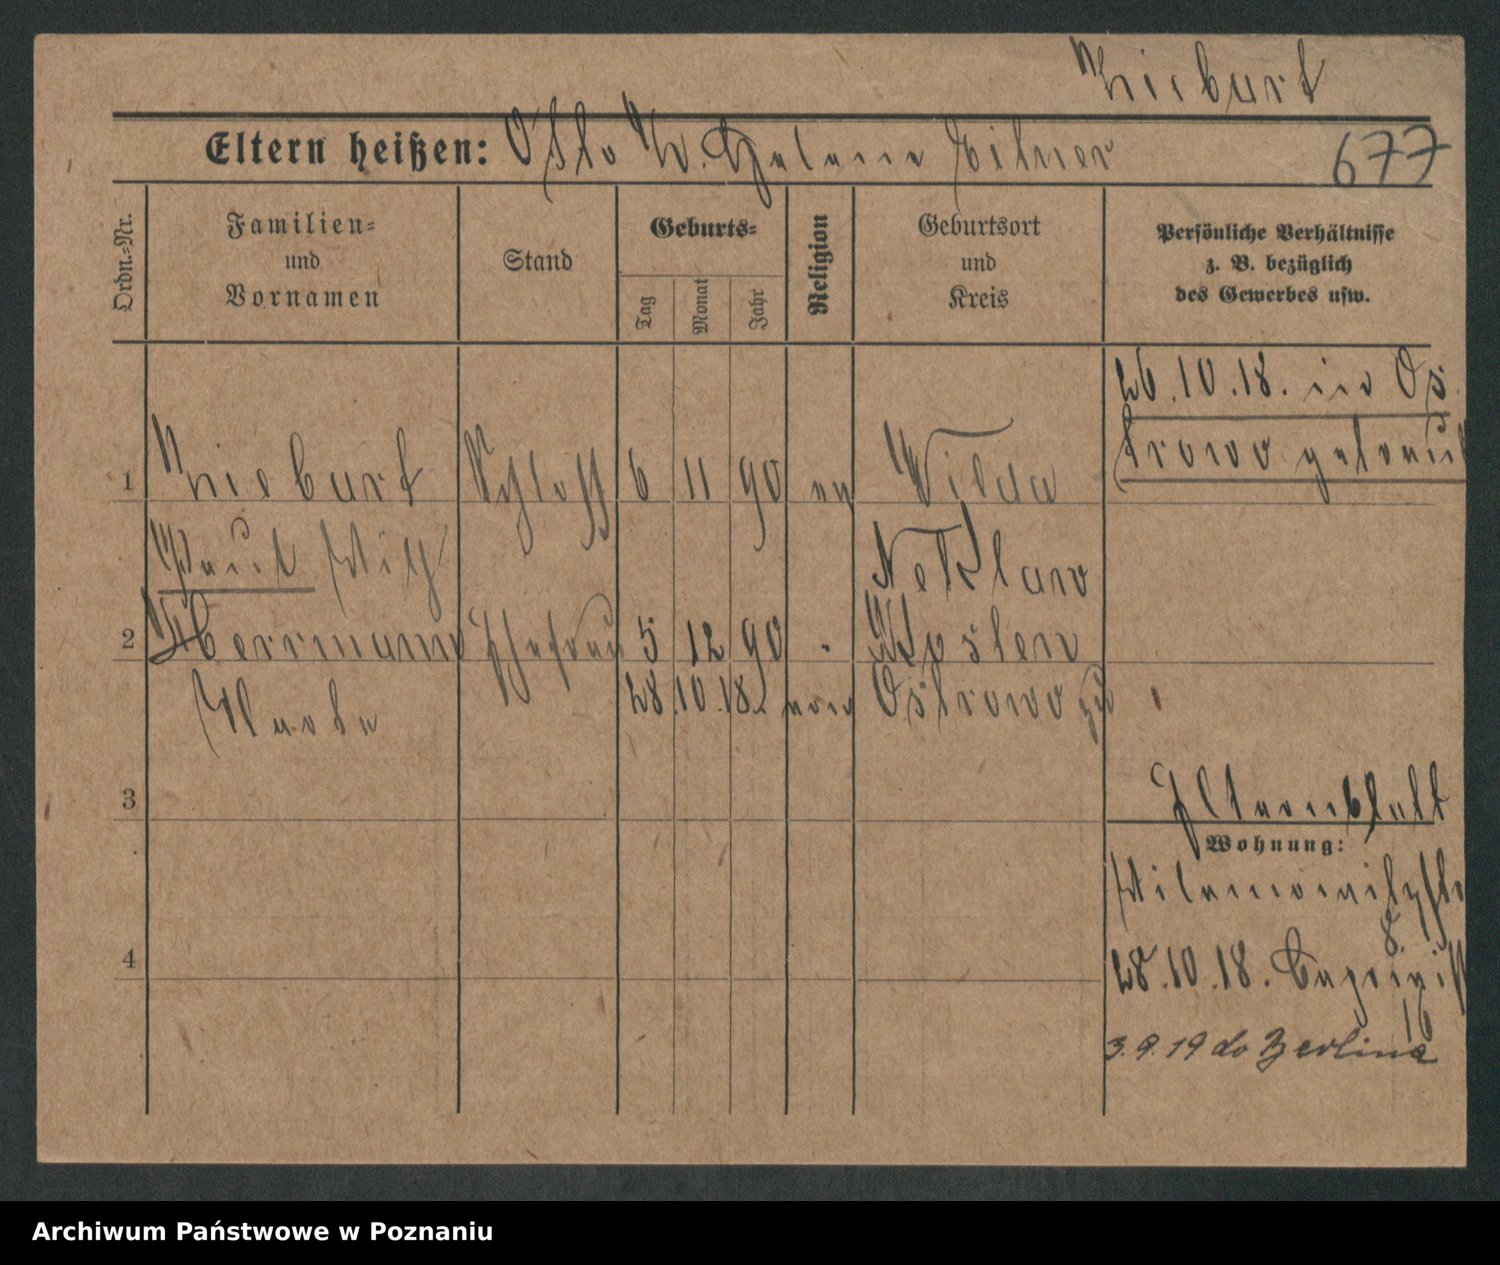 Kiebart
Eltern heißen: Otto K. Helene Eitner
677
Ordn.-Nr.
Familien=
und
Vornamen
Stand
Geburts=
Tag
Monat
Jahr
Religion
Geburtsort
und
Kreis
Persönliche Verhältnisse
z. B. bezüglich
des Gewerbes usw.
26.10.18. in Os
trowo getraut
1 Schloss 6 11 90 ev Wilda
Paul
Nekla
2 Herrmann Ehefrau 5 12 90 " Kosten
28.10.18. von Ostrowo zu
3
Elternblatt
Wohnung:
8.
4
28.10.18.
16
3.9.19 do Berlina
Archiwum Państwowe w Poznaniu